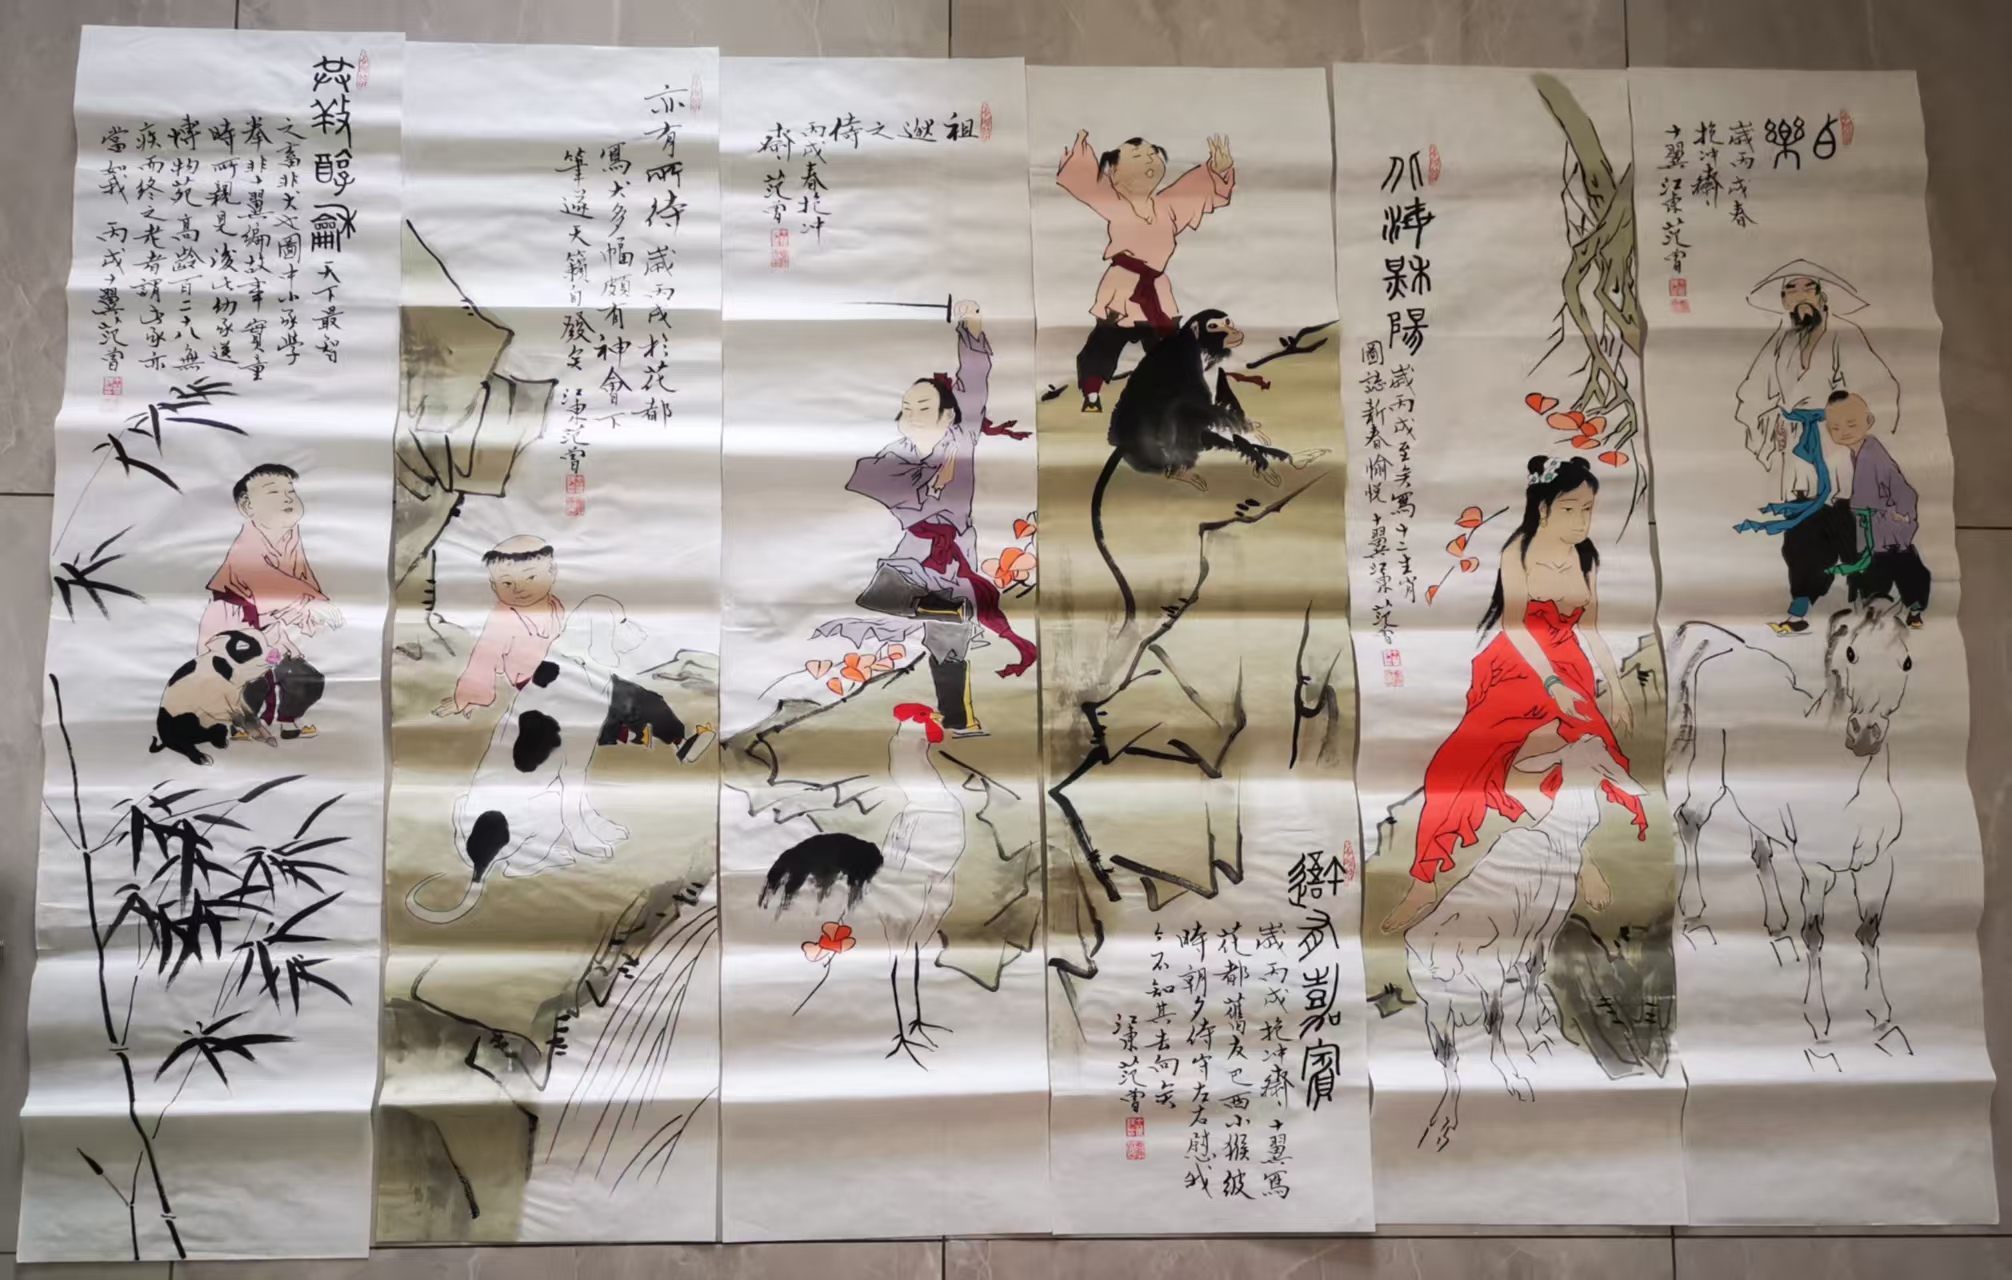 白樂
歲丙戌春
抱冲齋
十翼江東范曾
陽
歲丙戌至矣寫十二生肖
圖誌新春愉悦十翼江東范曾
我嘉賓
歲丙戌抱冲齋十翼寫
花都舊友巴西小猴彼
時朝夕侍守左右慰我
今不知其去向矣
江東范曾
祖逖之侍
丙戌春抱冲
齋范曾
亦有所待歲丙戌於花都
寫犬多幅頗有神會下
筆遂天籟自發矣江東范曾
醇龢天下最智
之畜非犬也圖中小豕學
拳非十翼編故事實童
時所親見後此幼豕送
博物苑高齡百二十八無
疾而終之老者謂此豕亦
當如我丙戌十翼范曾